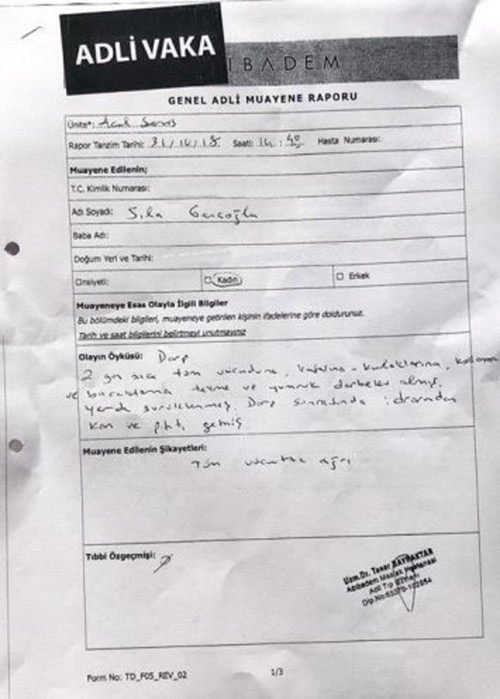 ADLİ VAKA
IBADEM
GENEL ADLİ MUAYENE RAPORU
Ünite: Acil Servis
Rapor Tanzim Tarihi: 31/10/18 Saati: 14:40 Hasta Numarası:
Muayene Edilenin;
T.C. Kimlik Numarası:
Adı Soyadı: Sıla Gençoğlu
Baba Adı:
Doğum Yeri ve Tarihi:
Cinsiyeti: Kadın Erkek
Muayeneye Esas Olayla İlgili Bilgiler
Bu bölümdeki bilgileri, muayeneye getirilen kişinin ifadelerine göre doldurunuz.
Tarih ve saat bilgilerini belirtmeyi unutmayınız
Olayın Öyküsü: Darp
2 gün önce tüm vücuduna, kafasına, kulaklarına, kollarına
ve bacaklarına tekme ve yumruk darbeleri almış,
yerde sürüklenmiş. Darp sonrasında idrarından
kan ve pıhtı gelmiş
Muayene Edilenin Şikayetleri:
Tüm vücutta ağrı
Tıbbi Özgeçmişi:
Uzm.Dr. Taner BAYRAKTAR
Acıbadem Maslak Hastanesi
Adli Tıp Uzmanı
Form No: TD_F05_REV_02
1/3